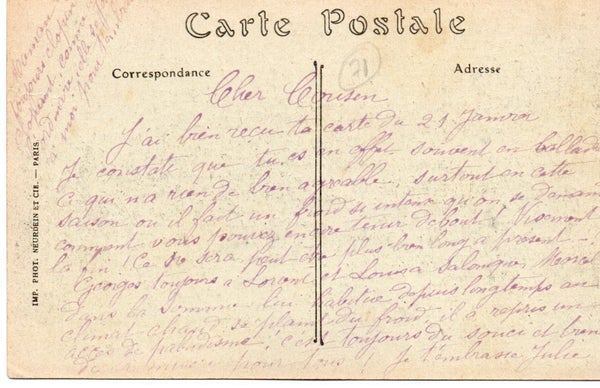 Carte Postale
Correspondance
Adresse
71
Cher Cousin
J'ai bien reçu ta carte du 21 Janvier
Je constate que tu es en effet souvent en ballade
ce qui n'a rien de bien agréable, surtout en cette
saison ou il fait un froid si intense qu'on se demande
comment vous pouvez encore tenir debout ! Vivement
la fin ! Ce ne sera peut être plus bien long à présent
Georges toujours à Lorient et Louis à Salonique, Marcel
dans la Somme lui habitué depuis longtemps au
climat chaud se plaint du froid, il a repris un
accès de paludisme ; c'est toujours du souci et bien
pour tous ! Je t'embrasse Julie
Maman
toujours
grand mère, elle
moi pour
IMP. PHOT. NEURDEIN ET CIE. — PARIS.